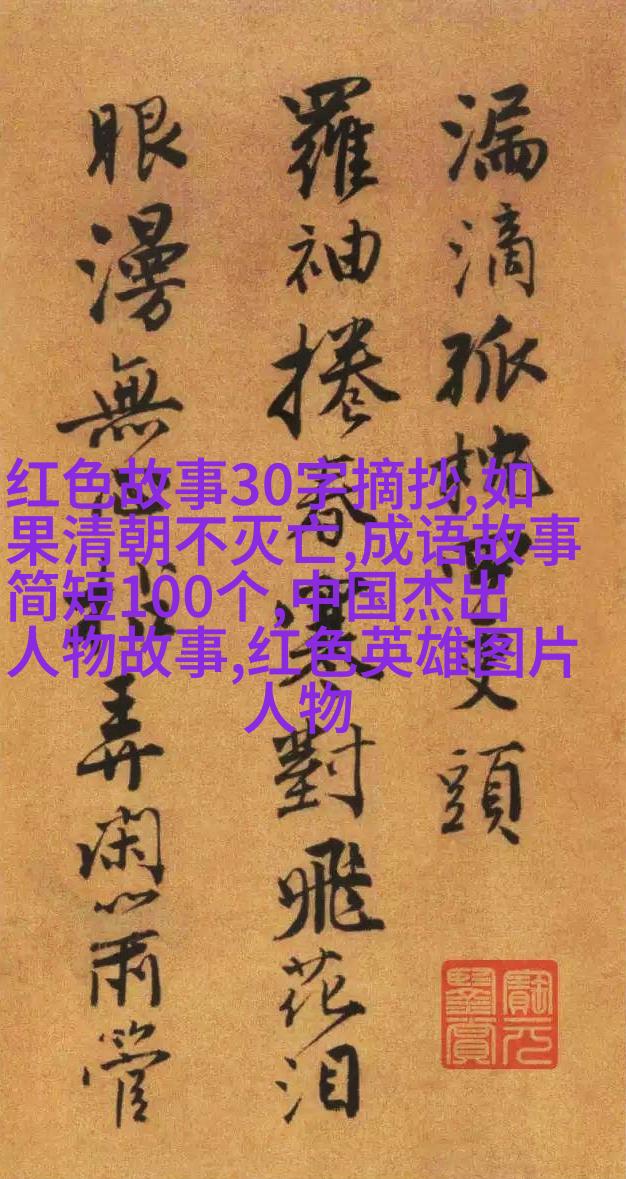 漏滴孤枕更頭
羅袖捲春對飛花泪
眼漫無弄閑管
红色故事30字摘抄,如
果清朝不灭亡,成语故事
简短100个,中国杰出
人物故事,红色英雄图片
人物